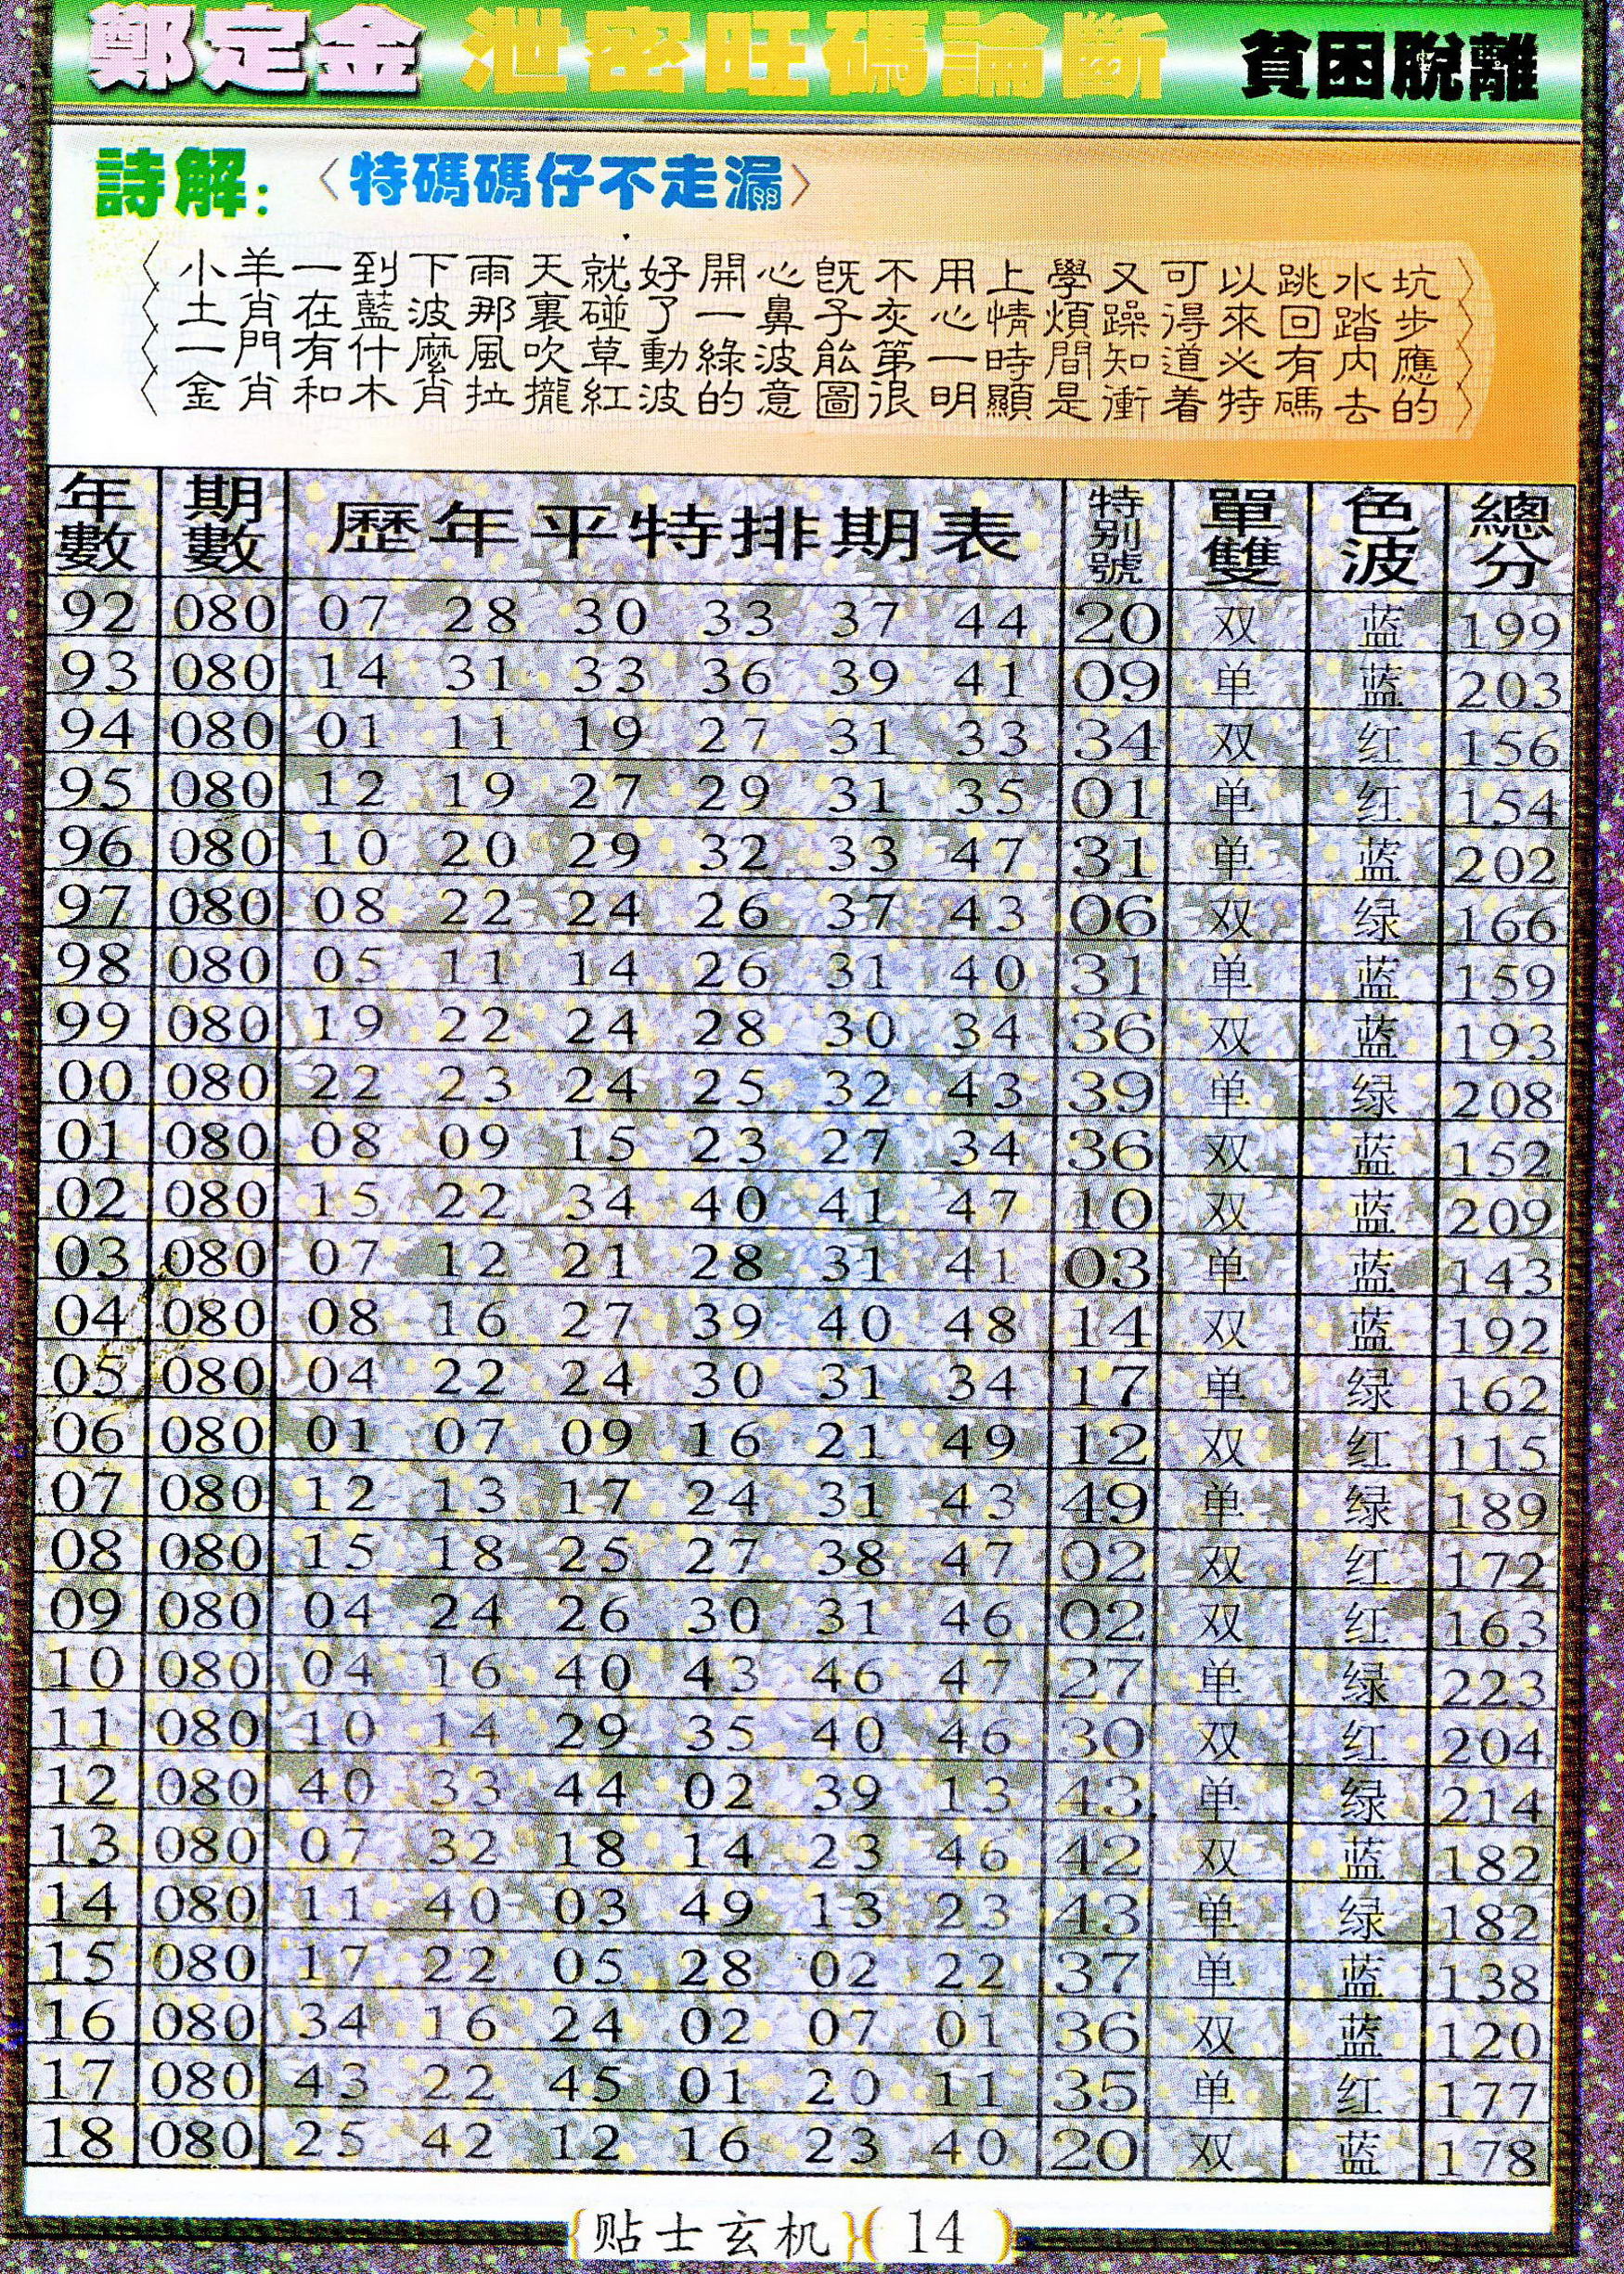 鄭定金 泄密旺碼論斷 貧困脫離
詩解:〈特碼碼仔不走漏〉
小羊一到下雨天就好開心既不用上學又可以跳水坑
土肖在藍波那裏碰了一鼻子灰心情煩躁得來回踏步
一門有什麽風吹草動綠波能第一時間知道火有内應
金肖和木肖拉攏紅波的意圖很明顯是衝着特碼去的
年數 期數 歷年平特排期表 特别號 單雙 色波 總分
92 080 07 28 30 33 37 44 20 双 蓝 199
93 080 14 31 33 36 39 41 09 单 蓝 203
94 080 01 11 19 27 31 33 34 双 红 156
95 080 12 19 27 29 31 35 01 单 红 154
96 080 10 20 29 32 33 47 31 单 蓝 202
97 080 08 22 24 26 37 43 06 双 绿 166
98 080 05 11 14 26 31 40 31 单 蓝 159
99 080 19 22 24 28 30 34 36 双 蓝 193
00 080 22 23 24 25 32 43 39 单 绿 208
01 080 08 09 15 23 27 34 36 双 蓝 152
02 080 15 22 34 40 41 47 10 双 蓝 209
03 080 07 12 21 28 31 41 03 单 蓝 143
04 080 08 16 27 39 40 48 14 双 蓝 192
05 080 04 22 24 30 31 34 17 单 绿 162
06 080 01 07 09 16 21 49 12 双 红 115
07 080 12 13 17 24 31 43 49 单 绿 189
08 080 15 18 25 27 38 47 02 双 红 172
09 080 04 24 26 30 31 46 02 双 红 163
10 080 04 16 40 43 46 47 27 单 绿 223
11 080 10 14 29 35 40 46 30 双 红 204
12 080 40 33 44 02 39 13 43 单 绿 214
13 080 07 32 18 14 23 46 42 双 蓝 182
14 080 11 40 03 49 13 23 43 单 绿 182
15 080 17 22 05 28 02 22 37 单 蓝 138
16 080 34 16 24 02 07 01 36 双 蓝 120
17 080 43 22 45 01 20 11 35 单 红 177
18 080 25 42 12 16 23 40 20 双 蓝 178
{贴士玄机}(14)